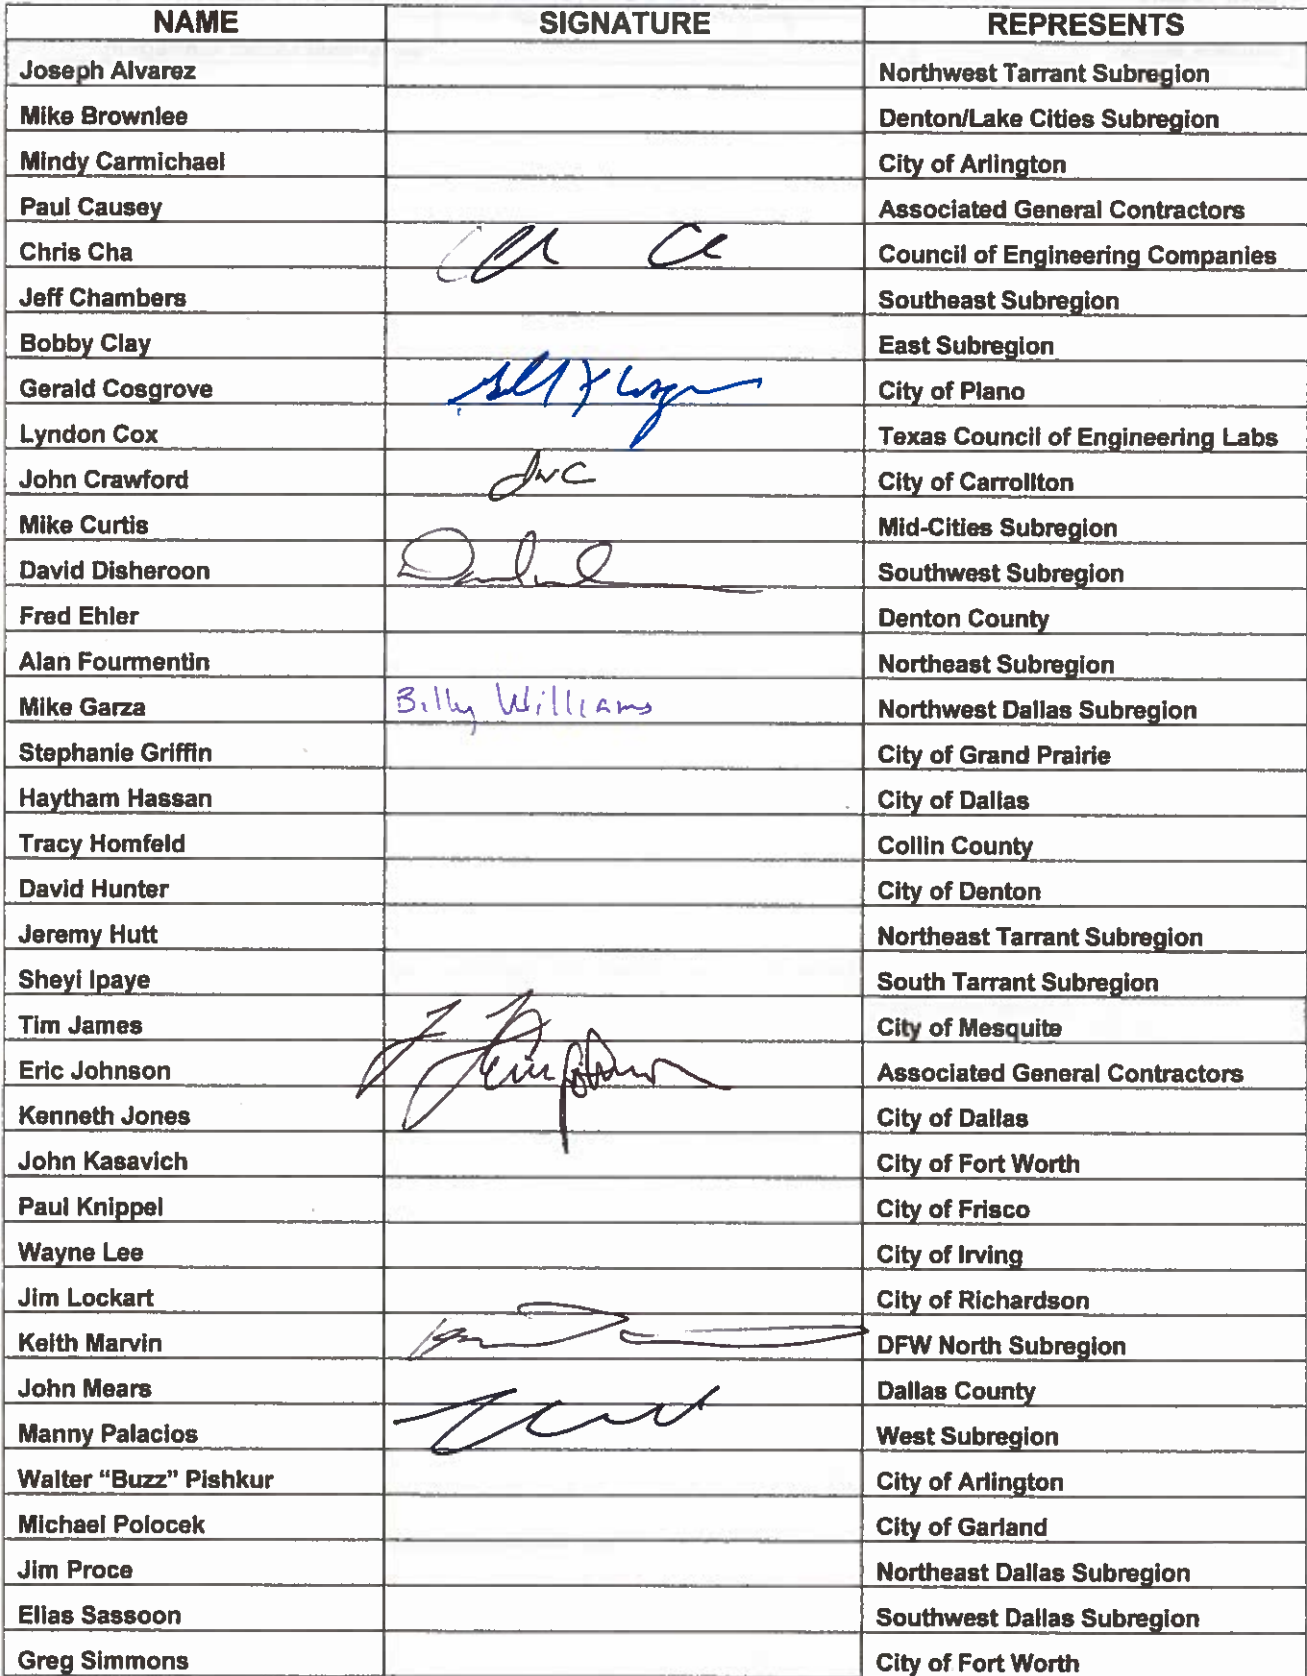 NAME SIGNATURE REPRESENTS
Joseph Alvarez Northwest Tarrant Subregion
Mike Brownlee Denton/Lake Cities Subregion
Mindy Carmichael City of Arlington
Paul Causey Associated General Contractors
Chris Cha Council of Engineering Companies
Jeff Chambers Southeast Subregion
Bobby Clay East Subregion
Gerald Cosgrove City of Plano
Lyndon Cox Texas Council of Engineering Labs
John Crawford JWC City of Carrollton
Mike Curtis Mid-Cities Subregion
David Disheroon Southwest Subregion
Fred Ehler Denton County
Alan Fourmentin Northeast Subregion
Mike Garza Billy Williams Northwest Dallas Subregion
Stephanie Griffin City of Grand Prairie
Haytham Hassan City of Dallas
Tracy Homfeld Collin County
David Hunter City of Denton
Jeremy Hutt Northeast Tarrant Subregion
Sheyi Ipaye South Tarrant Subregion
Tim James City of Mesquite
Eric Johnson Eric Johnson Associated General Contractors
Kenneth Jones City of Dallas
John Kasavich City of Fort Worth
Paul Knippel City of Frisco
Wayne Lee City of Irving
Jim Lockart City of Richardson
Keith Marvin DFW North Subregion
John Mears Dallas County
Manny Palacios West Subregion
Walter “Buzz” Pishkur City of Arlington
Michael Polocek City of Garland
Jim Proce Northeast Dallas Subregion
Elias Sassoon Southwest Dallas Subregion
Greg Simmons City of Fort Worth